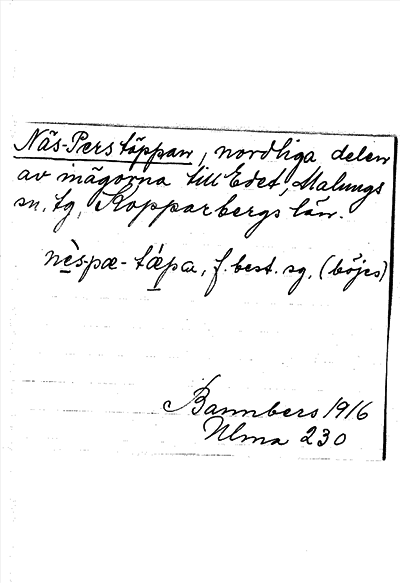 Näs-Perstäppan, nordliga delen
av inägorna till Edet, Malungs
sn, tg, Kopparbergs län.
nès-pæ-tǽpa, f. best. sg. (böjes)
Bannbers 1916
Ulma 230